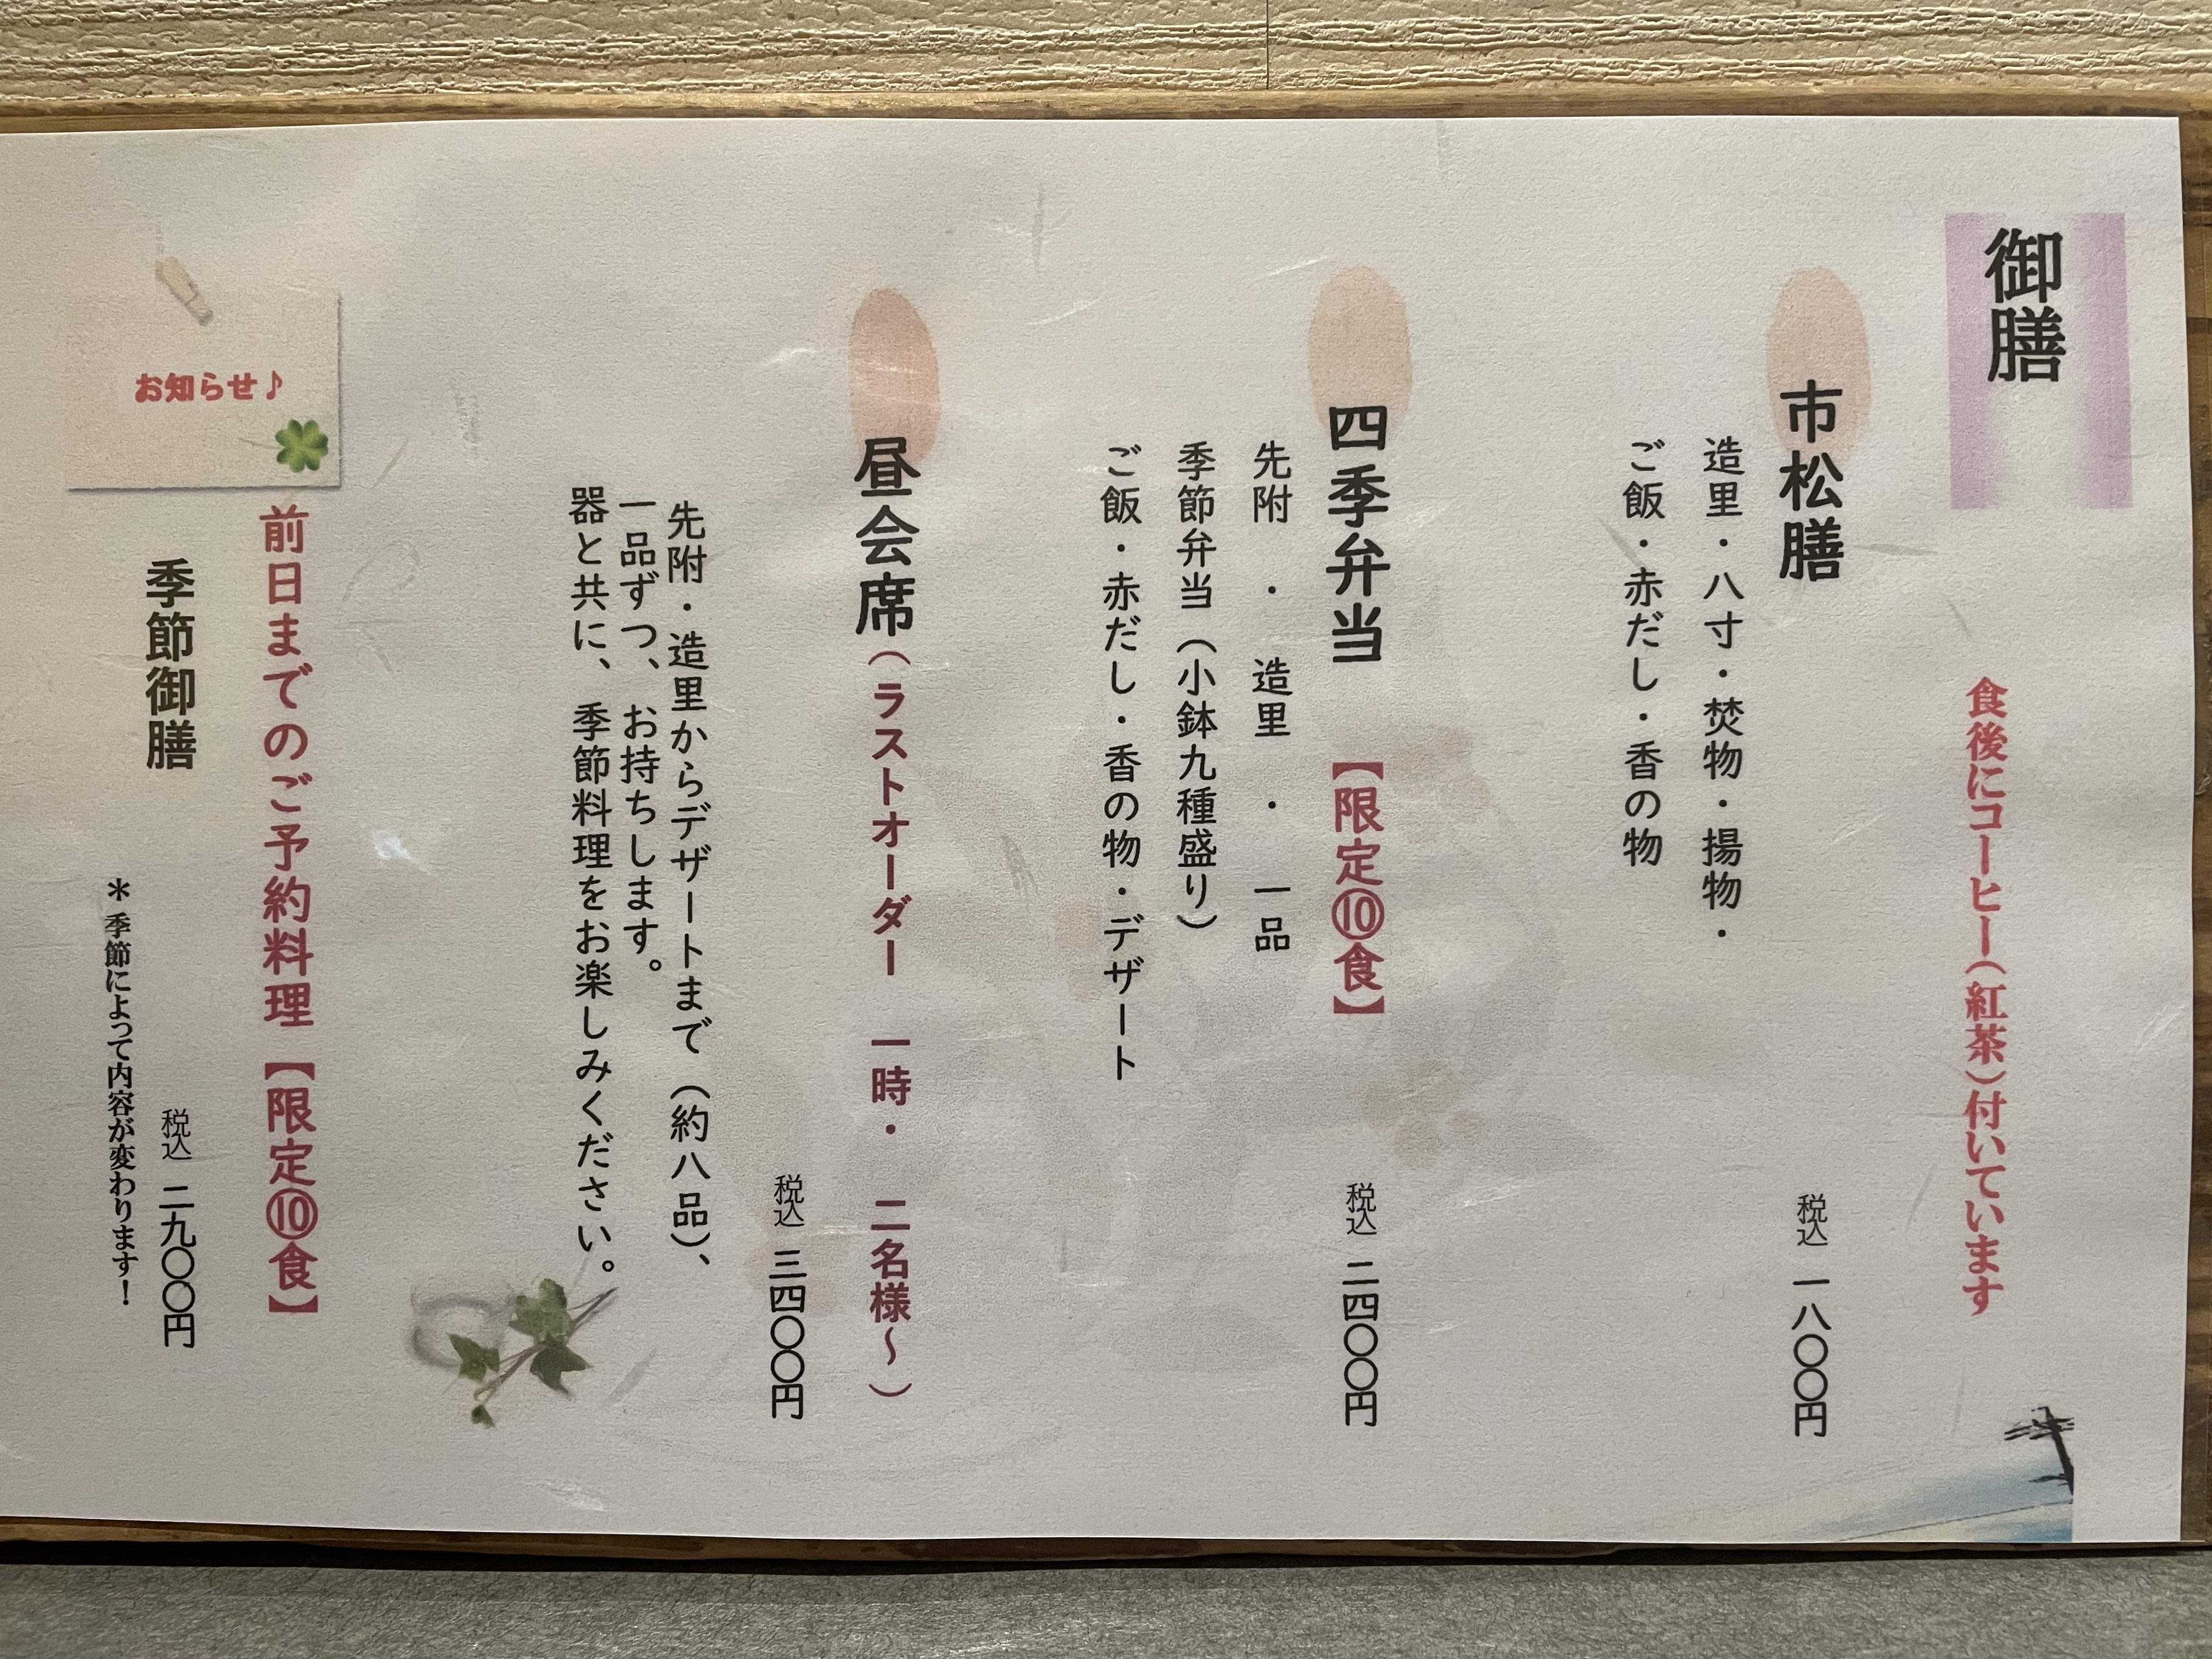 御膳
食後にコーヒー（紅茶）付いています
市松膳
造里・八寸・焚物・揚物・
ご飯・赤だし・香の物
税込 一八〇〇円
四季弁当 【限定⑩食】
先附 ・ 造里 ・ 一品
季節弁当（小鉢九種盛り）
ご飯・赤だし・香の物・デザート
税込 二四〇〇円
昼会席（ラストオーダー 一時・ 二名様～）
税込 三四〇〇円
先附・造里からデザートまで（約八品）、
一品ずつ、お持ちします。
器と共に、季節料理をお楽しみください。
お知らせ♪
前日までのご予約料理【限定⑩食】
季節御膳
税込 二九〇〇円
＊季節によって内容が変わります！